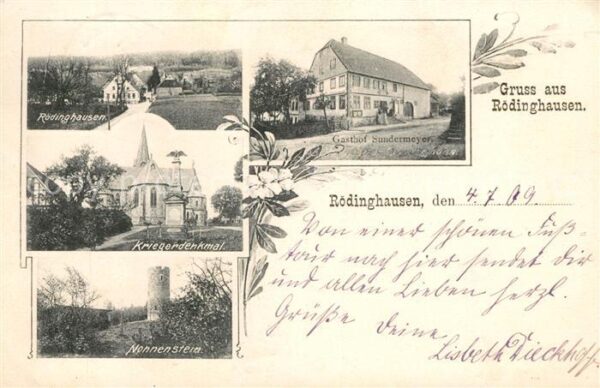 Gruss aus
Rödinghausen.
Rödinghausen.
Gasthof Sundermeyer.
Kriegerdenkmal.
Nonnenstein.
Rödinghausen, den 4.7.09.
Von einer schönen Fuß-
tour nach hier sendet Dir
und allen Lieben herzl.
Grüße Deine
Lisbeth Dieckhoff.